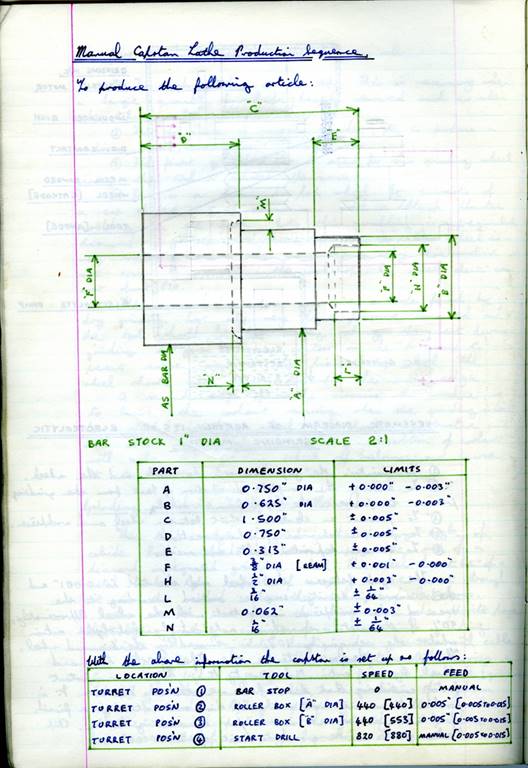 Manual Capstan Lathe Production Sequence.
To produce the following article:
"C"
"D" "E"
"M"
"F" DIA "F" DIA "H" DIA "B" DIA
"N" "L"
AS BAR DIA "A" DIA
BAR STOCK 1" DIA SCALE 2:1
PART DIMENSION LIMITS
A 0.750" DIA +0.000" -0.003"
B 0.625" DIA +0.000" -0.003"
C 1.500" ± 0.005"
D 0.750" ± 0.005"
E 0.313" ± 0.005"
F DIA [REAM] +0.001" -0.000"
H 1/2" DIA +0.003" -0.000"
L 3/16" ± 1/64"
M 0.062" ± 0.003"
N 1/16" ± 1/64"
With the above information the capstan is set up as follows:
LOCATION TOOL SPEED FEED
TURRET POS'N 1 BAR STOP 0 MANUAL
TURRET POS'N 2 ROLLER BOX ["A" DIA] 440 [440] 0.005" [0.005 TO 0.015]
TURRET POS'N 3 ROLLER BOX ["B" DIA] 440 [553] 0.005" [0.005 TO 0.015]
TURRET POS'N 4 START DRILL 820 [880] MANUAL [0.005 TO 0.015]